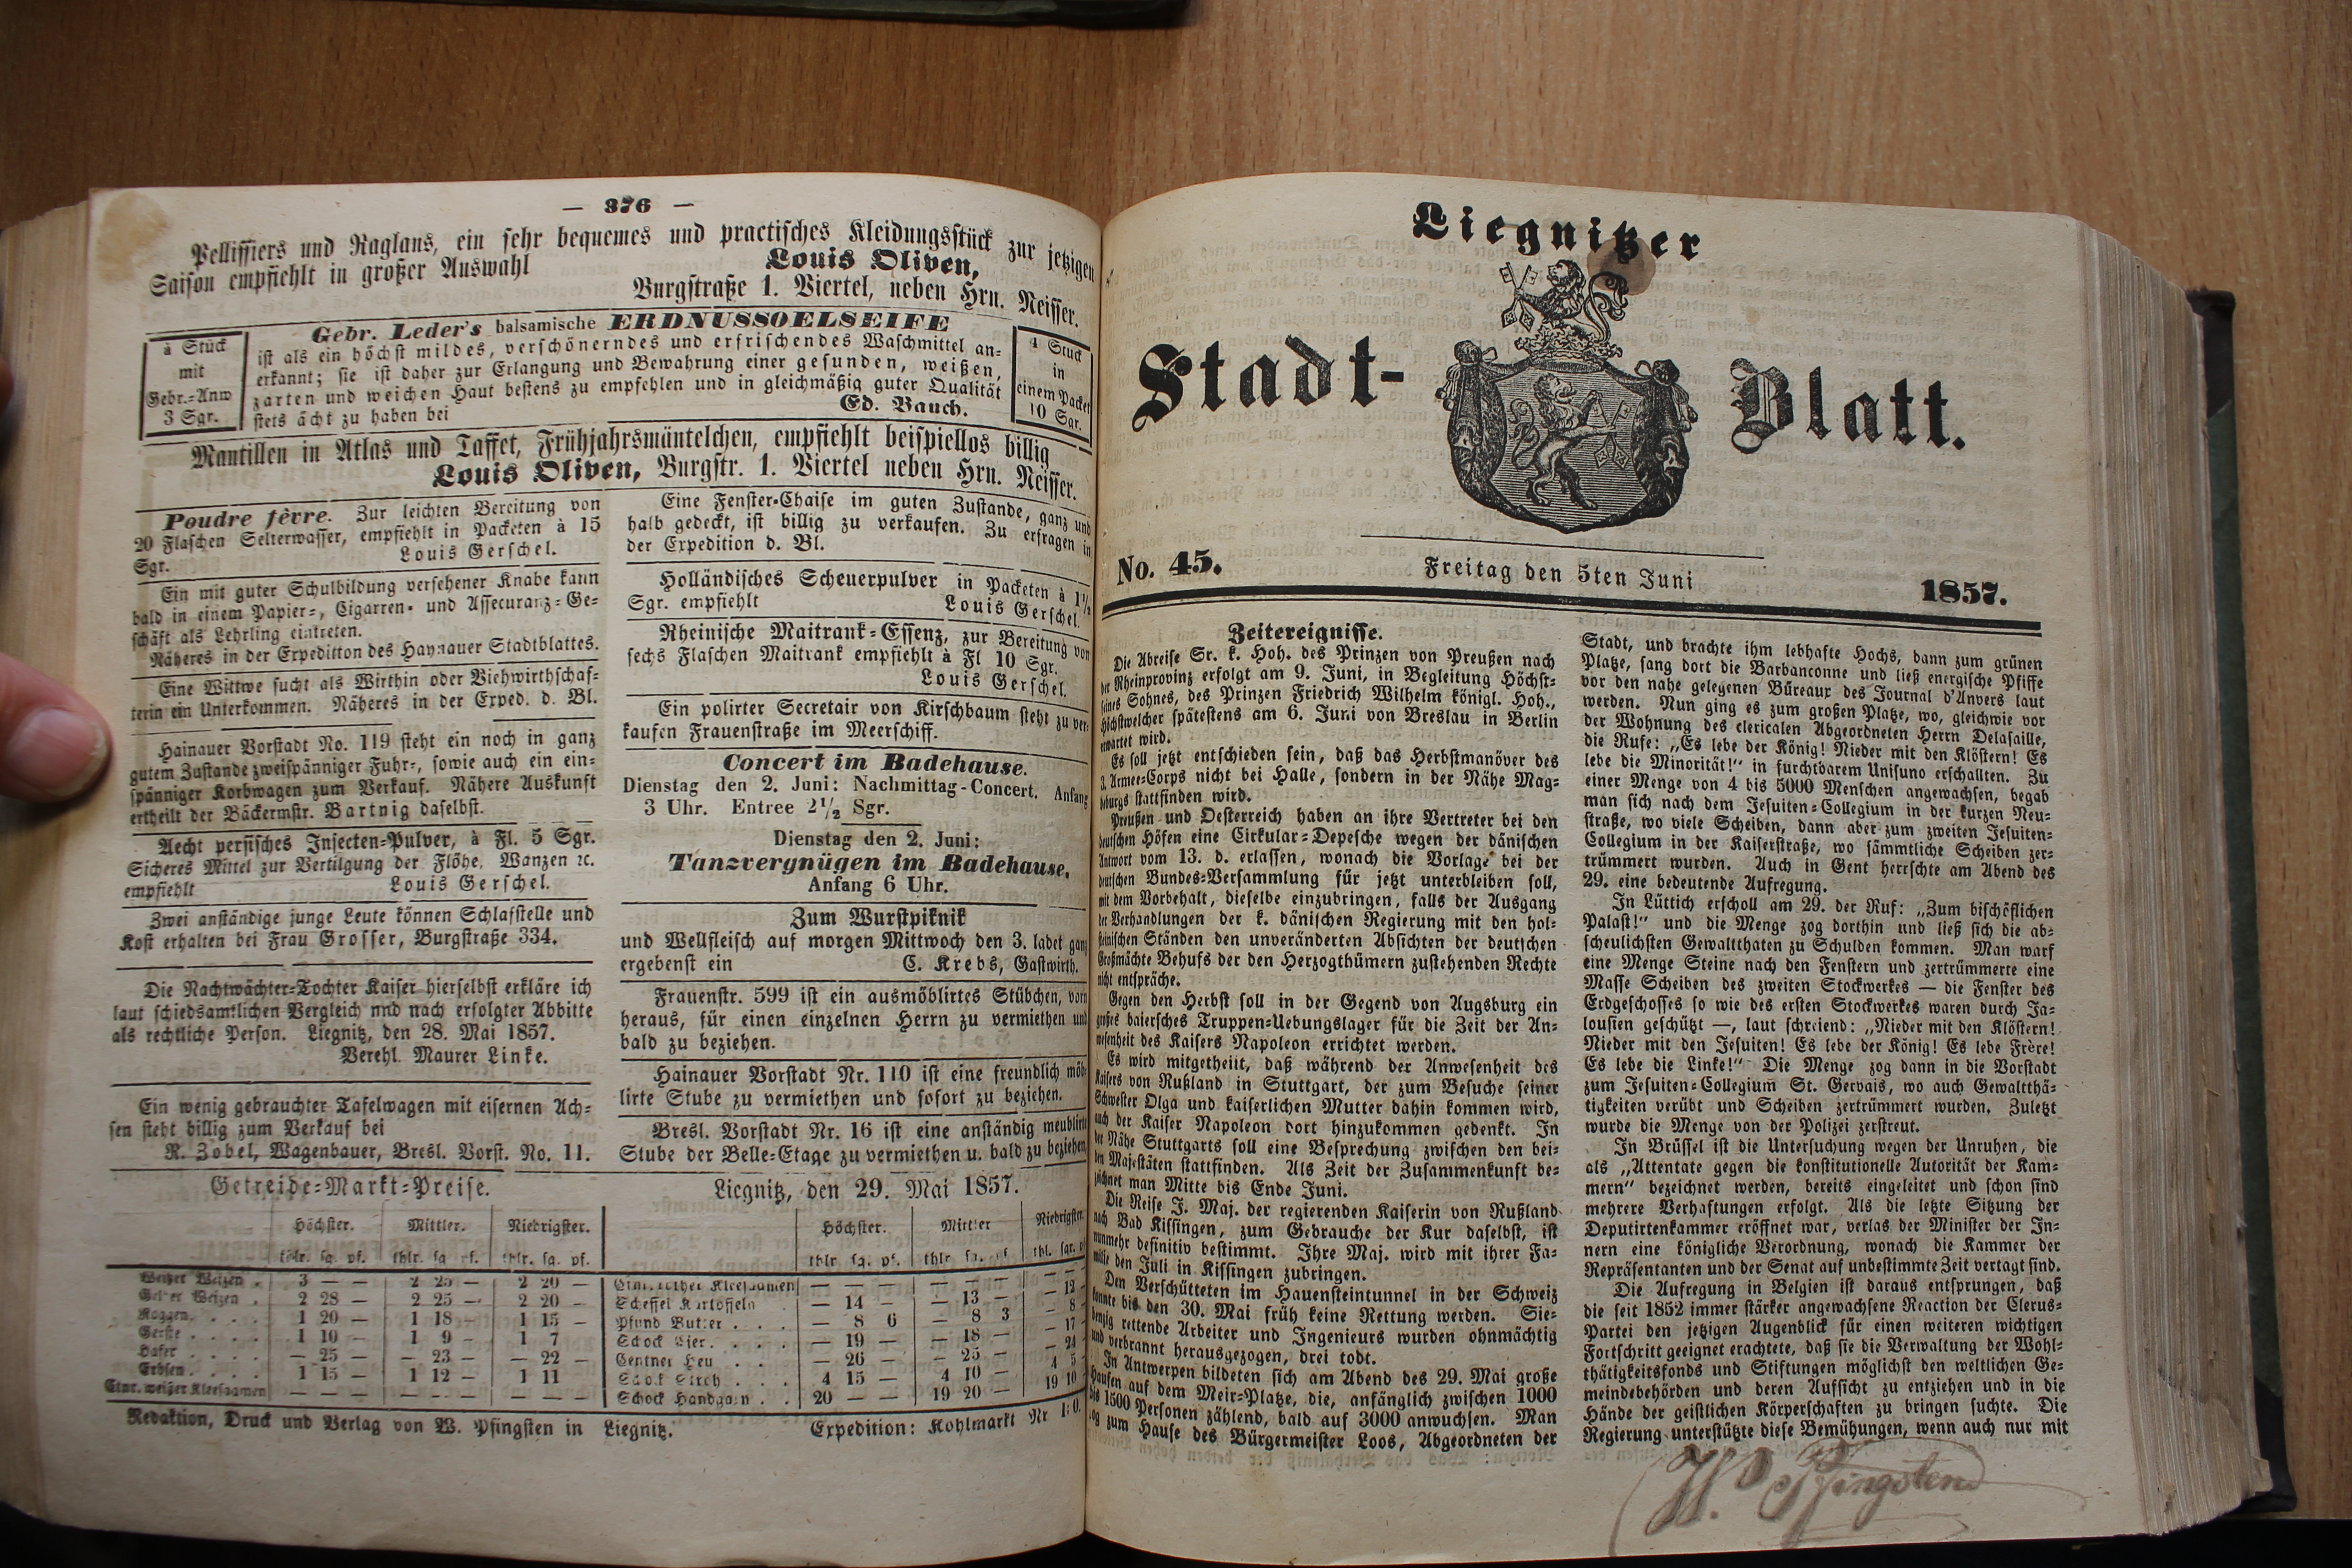 — 376 —
Pellissiers und Raglans, ein sehr bequemes und practisches Kleidungsstück zur jetzigen
Saison empfiehlt in großer Auswahl
Louis Oliven,
Burgstraße 1. Viertel, neben Hrn. Neisser.
à Stück
mit
Gebr.-Anw
3 Sgr.
Gebr. Leder's balsamische ERDNUSSOELSEIFE
ist als ein höchst mildes, verschönerndes und erfrischendes Waschmittel an-
erkannt; sie ist daher zur Erlangung und Bewahrung einer gesunden, weißen,
zarten und weichen Haut bestens zu empfehlen und in gleichmäßig guter Qualität
stets ächt zu haben bei
Ed. Bauch.
4 Stück
in
einem Packet
10 Sgr.
Mantillen in Atlas und Taffet, Frühjahrsmäntelchen, empfiehlt beispiellos billig
Louis Oliven, Burgstr. 1. Viertel neben Hrn. Neisser.
Poudre fèvre. Zur leichten Bereitung von
20 Flaschen Selterwasser, empfiehlt in Packeten à 15
Sgr. Louis Gerschel.
Ein mit guter Schulbildung versehener Knabe kann
bald in einem Papier-, Cigarren- und Assecuranz-Ge-
schäft als Lehrling eintreten.
Näheres in der Expedition des Haynauer Stadtblattes.
Eine Wittwe sucht als Wirthin oder Viehwirthschaf-
terin ein Unterkommen. Näheres in der Exped. d. Bl.
Hainauer Vorstadt No. 119 steht ein noch in ganz
gutem Zustande zweispänniger Fuhr-, sowie auch ein ein-
spänniger Korbwagen zum Verkauf. Nähere Auskunft
ertheilt der Bäckermstr. Bartnig daselbst.
Aecht persisches Insecten-Pulver, à Fl. 5 Sgr.
Sicheres Mittel zur Vertilgung der Flöhe, Wanzen ꝛc.
empfiehlt Louis Gerschel.
Zwei anständige junge Leute können Schlafstelle und
Kost erhalten bei Frau Grosser, Burgstraße 334.
Die Nachtwächter-Tochter Kaiser hierselbst erkläre ich
laut schiedsamtlichen Vergleich nnd nach erfolgter Abbitte
als rechtliche Person. Liegnitz, den 28. Mai 1857.
Verehl. Maurer Linke.
Ein wenig gebrauchter Tafelwagen mit eisernen Ach-
sen steht billig zum Verkauf bei
R. Zobel, Wagenbauer, Bresl. Vorst. No. 11.
Eine Fenster-Chaise im guten Zustande, ganz und
halb gedeckt, ist billig zu verkaufen. Zu erfragen in
der Expedition d. Bl.
Holländisches Scheuerpulver in Packeten à 1½
Sgr. empfiehlt Louis Gerschel.
Rheinische Maitrank-Essenz, zur Bereitung von
sechs Flaschen Maitrank empfiehlt à Fl 10 Sgr.
Louis Gerschel.
Ein polirter Secretair von Kirschbaum steht zu ver-
kaufen Frauenstraße im Meerschiff.
Concert im Badehause.
Dienstag den 2. Juni: Nachmittag-Concert. Anfang
3 Uhr. Entree 2½ Sgr.
Dienstag den 2. Juni:
Tanzvergnügen im Badehause.
Anfang 6 Uhr.
Zum Wurstpiknik
und Wellfleisch auf morgen Mittwoch den 3. ladet ganz
ergebenst ein C. Krebs, Gastwirth.
Frauenstr. 599 ist ein ausmöblirtes Stübchen, vorn
heraus, für einen einzelnen Herrn zu vermiethen und
bald zu beziehen.
Hainauer Vorstadt Nr. 110 ist eine freundlich möb-
lirte Stube zu vermiethen und sofort zu beziehen.
Bresl. Vorstadt Nr. 16 ist eine anständig meublirte
Stube der Belle-Etage zu vermiethen u. bald zu beziehen
Getreide-Markt-Preise. Liegnitz, den 29. Mai 1857.
Höchster. Mittler. Niedrigster. Höchster. Mittler Niedrigster
thlr. sg. pf. thlr. sg. pf. thlr. sg. pf. thlr. sg. pf. thlr. sg. pf. thl. sgr.
Weißer Weizen . 3 — — 2 25 — 2 20 — Ctnr. rother Kleesaamen — — — — — — — —
Gelber Weizen . 2 28 — 2 25 — 2 20 — Scheffel Kartoffeln — 14 — — 13 — — 12
Roggen. . . . 1 20 — 1 18 — 1 15 — Pfund Butter . . . — 8 6 — 8 3 — 8
Gerste . . . . 1 10 — 1 9 — 1 7 Schock Eier. . . . — 19 — — 18 — — 17
Hafer . . . . — 25 — — 23 — — 22 — Centner Heu . . — 26 — — 25 — — 24
Erbsen . . . . 1 15 — 1 12 — 1 11 Schock Stroh . . . 4 15 — 4 10 — 4 5
Ctnr. weißer Kleesaamen — — — — — — — — — Schock Handgarn . . 20 — — 19 20 — 19 10
Redaktion, Druck und Verlag von W. Pfingsten in Liegnitz. Expedition: Kohlmarkt Nr
Liegnitzer
Stadt-Blatt.
No. 45. Freitag den 5ten Juni 1857.
Zeitereignisse.
Die Abreise Sr. k. Hoh. des Prinzen von Preußen nach
der Rheinprovinz erfolgt am 9. Juni, in Begleitung Höchst-
seines Sohnes, des Prinzen Friedrich Wilhelm königl. Hoh.,
Höchstwelcher spätestens am 6. Juni von Breslau in Berlin
erwartet wird.
Es soll jetzt entschieden sein, daß das Herbstmanöver des
3. Armee-Corps nicht bei Halle, sondern in der Nähe Mag-
deburgs stattfinden wird.
Preußen und Oesterreich haben an ihre Vertreter bei den
deutschen Höfen eine Cirkular-Depesche wegen der dänischen
Antwort vom 13. d. erlassen, wonach die Vorlage bei der
deutschen Bundes-Versammlung für jetzt unterbleiben soll,
mit dem Vorbehalt, dieselbe einzubringen, falls der Ausgang
der Verhandlungen der k. dänischen Regierung mit den hol-
steinischen Ständen den unveränderten Absichten der deutschen
Großmächte Behufs der den Herzogthümern zustehenden Rechte
nicht entspräche.
Gegen den Herbst soll in der Gegend von Augsburg ein
großes baiersches Truppen-Uebungslager für die Zeit der An-
wesenheit des Kaisers Napoleon errichtet werden.
Es wird mitgetheilt, daß während der Anwesenheit des
Kaisers von Rußland in Stuttgart, der zum Besuche seiner
Schwester Olga und kaiserlichen Mutter dahin kommen wird,
auch der Kaiser Napoleon dort hinzukommen gedenkt. In
der Nähe Stuttgarts soll eine Besprechung zwischen den bei-
den Majestäten stattfinden. Als Zeit der Zusammenkunft be-
zeichnet man Mitte bis Ende Juni.
Die Reise J. Maj. der regierenden Kaiserin von Rußland
nach Bad Kissingen, zum Gebrauche der Kur daselbst, ist
nunmehr definitiv bestimmt. Ihre Maj. wird mit ihrer Fa-
milie den Juli in Kissingen zubringen.
Den Verschütteten im Hauensteintunnel in der Schweiz
konnte bis den 30. Mai früh keine Rettung werden. Sie-
benzig rettende Arbeiter und Ingenieurs wurden ohnmächtig
und verbrannt herausgezogen, drei todt.
In Antwerpen bildeten sich am Abend des 29. Mai große
Haufen auf dem Meir-Platze, die, anfänglich zwischen 1000
bis 1500 Personen zählend, bald auf 3000 anwuchsen. Man
zog zum Hause des Bürgermeister Loos, Abgeordneten der
Stadt, und brachte ihm lebhafte Hochs, dann zum grünen
Platze, sang dort die Barbanconne und ließ energische Pfiffe
vor den nahe gelegenen Büreaux des Journal d'Anvers laut
werden. Nun ging es zum großen Platze, wo, gleichwie vor
der Wohnung des clericalen Abgeordneten Herrn Delasaille,
die Rufe: „Es lebe der König! Nieder mit den Klöstern! Es
lebe die Minorität!“ in furchtbarem Unisuno erschallten. Zu
einer Menge von 4 bis 5000 Menschen angewachsen, begab
man sich nach dem Jesuiten-Collegium in der kurzen Neu-
straße, wo viele Scheiben, dann aber zum zweiten Jesuiten-
Collegium in der Kaiserstraße, wo sämmtliche Scheiben zer-
trümmert wurden. Auch in Gent herrschte am Abend des
29. eine bedeutende Aufregung.
In Lüttich erscholl am 29. der Ruf: „Zum bischöflichen
Palast!“ und die Menge zog dorthin und ließ sich die ab-
scheulichsten Gewaltthaten zu Schulden kommen. Man warf
eine Menge Steine nach den Fenstern und zertrümmerte eine
Masse Scheiben des zweiten Stockwerkes — die Fenster des
Erdgeschosses so wie des ersten Stockwerkes waren durch Ja-
lousien geschützt —, laut schreiend: „Nieder mit den Klöstern!
Nieder mit den Jesuiten! Es lebe der König! Es lebe Frère!
Es lebe die Linke!“ Die Menge zog dann in die Vorstadt
zum Jesuiten-Collegium St. Gervais, wo auch Gewaltthä-
tigkeiten verübt und Scheiben zertrümmert wurden. Zuletzt
wurde die Menge von der Polizei zerstreut.
In Brüssel ist die Untersuchung wegen der Unruhen, die
als „Attentate gegen die konstitutionelle Autorität der Kam-
mern“ bezeichnet werden, bereits eingeleitet und schon sind
mehrere Verhaftungen erfolgt. Als die letzte Sitzung der
Deputirtenkammer eröffnet war, verlas der Minister der In-
nern eine königliche Verordnung, wonach die Kammer der
Repräsentanten und der Senat auf unbestimmte Zeit vertagt sind.
Die Aufregung in Belgien ist daraus entsprungen, daß
die seit 1852 immer stärker angewachsene Reaction der Clerus-
Partei den jetzigen Augenblick für einen weiteren wichtigen
Fortschritt geeignet erachtete, daß sie die Verwaltung der Wohl-
thätigkeitsfonds und Stiftungen möglichst den weltlichen Ge-
meindebehörden und deren Aufsicht zu entziehen und in die
Hände der geistlichen Körperschaften zu bringen suchte. Die
Regierung unterstützte diese Bemühungen, wenn auch nur mit
W. Pfingsten